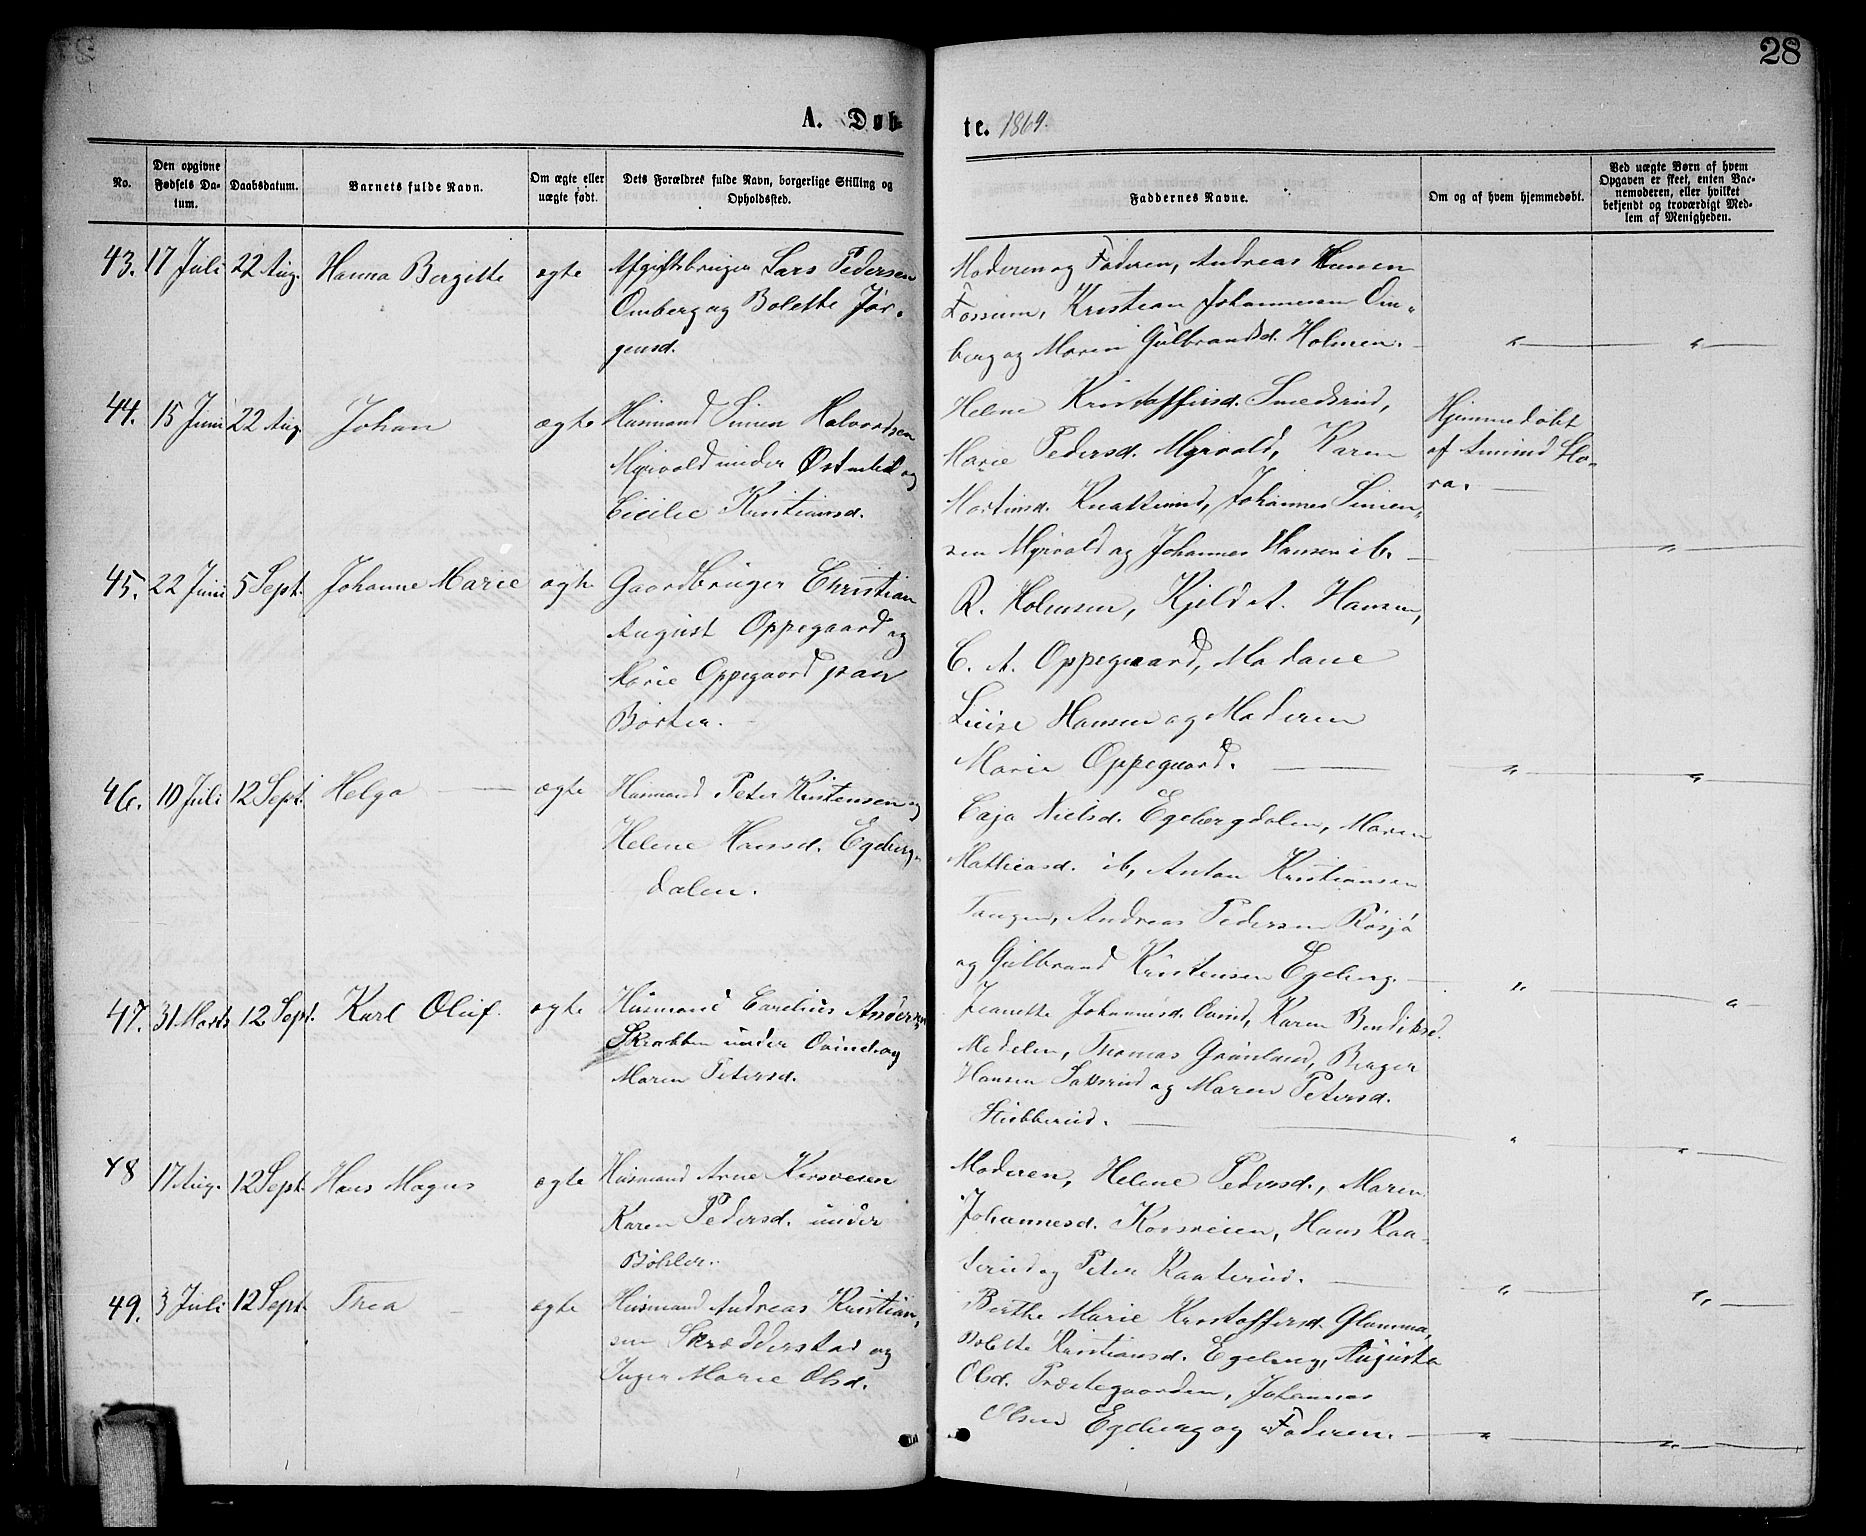 28
A. Døb-
te. 1869.
No.
Den opgivne Fødsels Da-
tum.
Daabsdatum.
Barnets fulde Navn.
Om ægte eller
uægte født.
Dets Forældres fulde Navn, borgerlige Stilling og
Opholdssted.
Faddernes Navne.
Om og af hvem hjemmedøbt.
Ved uægte Børn af hvem
Opgaven er skeet, enten Bar-
nemoderen, eller hvilket
bekjendt og troværdigt Med-
lem af Menigheden.
43. 17 Juli 22 Aug. Hanna Bergitte ægte
Afgiftsbruger Lars Pedersen
Omberg og Bolette Jør-
gensd.
Moderen og Faderen, Andreas Hansen
Fossum, Kristian Johannesen Om-
berg og Maren Gulbrandsd. Holmen. " "
44. 15 Juni 22 Aug. Johan ægte
Husmand Simen Halvordsen
Myrvold under Østmlid og
Cicilie Kristiansd.
Helene Kristoffersd. Smedsrud,
Marie Pedersd. Myrvold, Karen
Martinsd. Knatterud, Johannes Simen-
sen Myrvold og Johannes Hansen ib.
Hjemmedøbt
af Amund Ho-
ra. "
45. 22 Juni 5 Sept. Johanne Marie ægte
Gaardbruger Christian
August Oppegaard og
Marie Oppegaard paa
Børter.
R. Holmsen, Kjeld A. Hansen,
C. A. Oppegaard, Madame
Luise Hansen og Moderen
Marie Oppegaard. " "
46. 10 Juli 12 Sept. Helga ægte
Husmand Peter Kristensen og
Helene Hansd. Egeberg-
dalen.
Caja Nielsd. Egebergdalen, Maren
Matheasd. ib, Anton Kristiansen
Tangen, Andreas Pedersen Røsjø
og Gulbrand Kristensen Egeberg. " "
47. 31 Marts 12 Sept. Karl Oluf ægte
Husmand Carelius Andersen
Skrabben under Ovind og
Maren Petersd.
Jeanette Johannesd. Ovind, Karen Bendiksd.
Modelen, Thomas Grønland, Birger
Hansen Saxrud og Maren Petersd.
Stubberud. " "
48 17 Aug. 12 Sept. Hans Magnus ægte
Husmand Arne Korsveien
Karen Pedersd. under
Bøhler.
Moderen, Helene Pedersd., Maren
Johannesd. Korsveien, Hans Raa-
terud og Peter Raaterud. " "
49. 3 Juli 12 Sept. Thea ægte
Husmand Andreas Kristian-
sen Skrædderstad og
Inger Marie Olsd.
Berthe Marie Kristoffersd. Glomma,
Bolette Kristiansd. Egeberg, Augusta
Olsd. Præstegaarden, Johannes
Olsen Egeberg og Faderen. " "